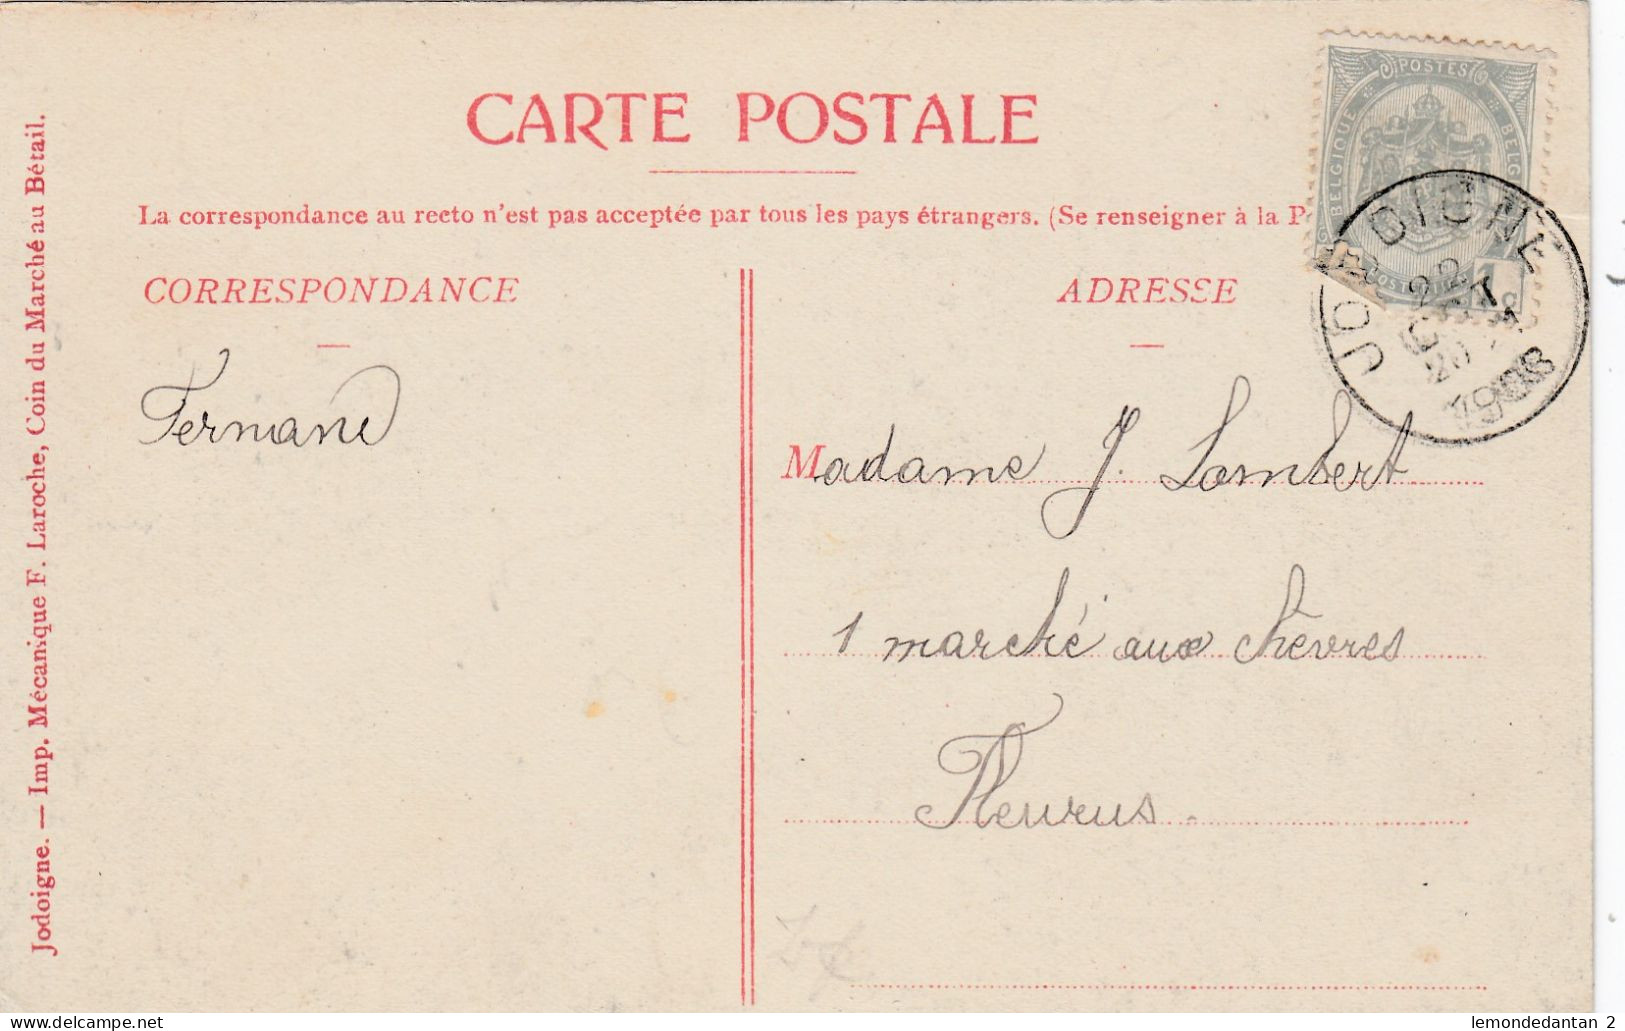 CARTE POSTALE
La correspondance au recto n'est pas acceptée par tous les pays étrangers. (Se renseigner à la P
CORRESPONDANCE
ADRESSE
Fernand
Madame J. Lambert
1 marché aux chèvres
Fleurus.
Jodoigne. — Imp. Mécanique F. Laroche, Coin du Marché au Bétail.
POSTES
BELGIQUE
BELG
1
JODOIGNE
22
20
1908
lemondedantan 2